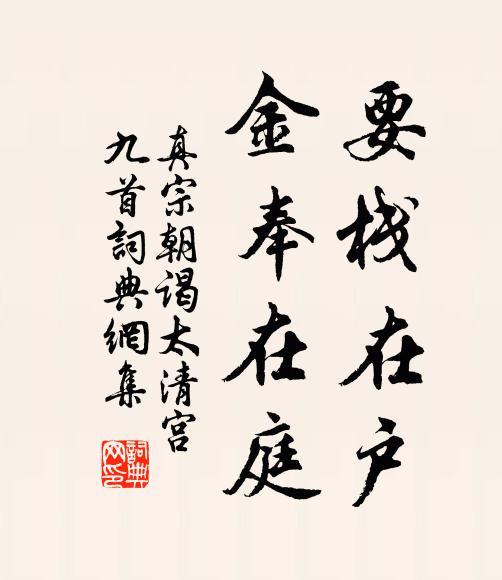 要栈在户
金奉在庭
真宗朝谒太清宫
九首詞典網集
詞典
网印